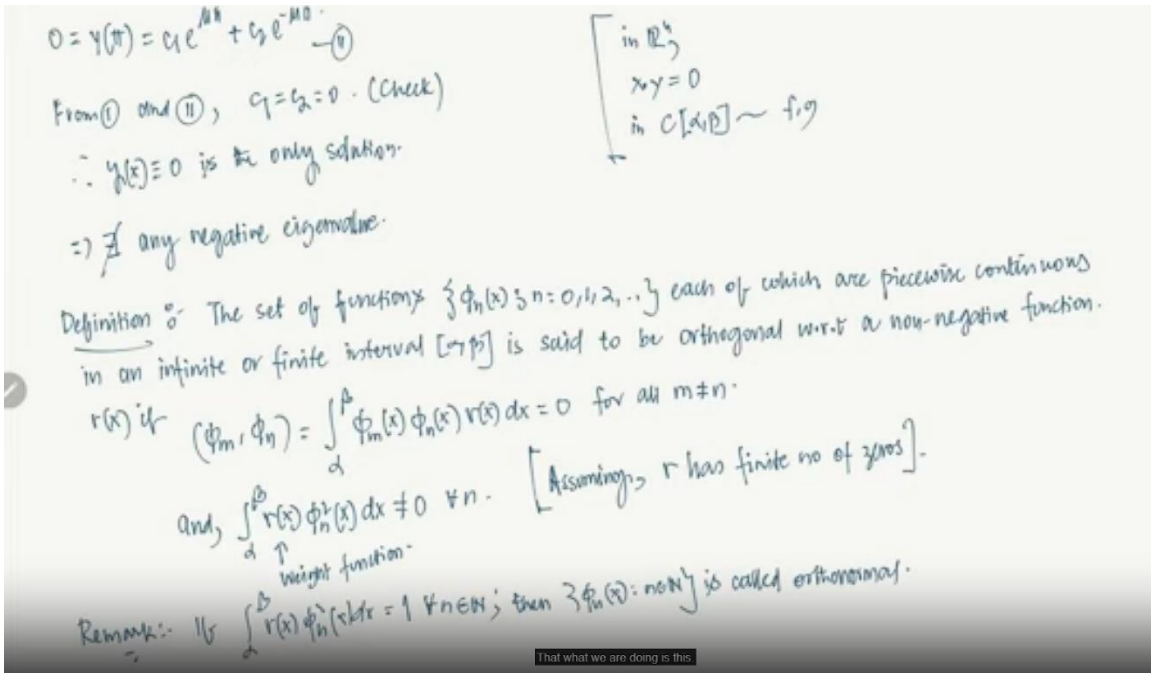 0 = y(π) = c₁e^{μπ} + c₂e^{-μπ} -(II)
From (I) and (II), c₁ = c₂ = 0. (Check)
∴ y(x) ≡ 0 is the only solution.
=> ∄ any negative eigenvalue.
in ℝⁿ,
x.y = 0
in C[α,β] ~ f,g
Definition :- The set of functions {ϕₙ(x) ; n = 0,1,2,..} each of which are piecewise continuous
in an infinite or finite interval [α,β] is said to be orthogonal w.r.t a non-negative function.
r(x) if (ϕₘ, ϕₙ) = ∫_α^β ϕₘ(x) ϕₙ(x) r(x) dx = 0 for all m ≠ n.
and, ∫_α^β r(x) ϕₙ²(x) dx ≠ 0 ∀n. [Assuming, r has finite no of zeros].
↑
weight function.
Remark:- If ∫_α^β r(x) ϕₙ²(x) dx = 1 ∀n∈ℕ; then {ϕₙ(x) : n∈ℕ} is called orthonormal.
That what we are doing is this.